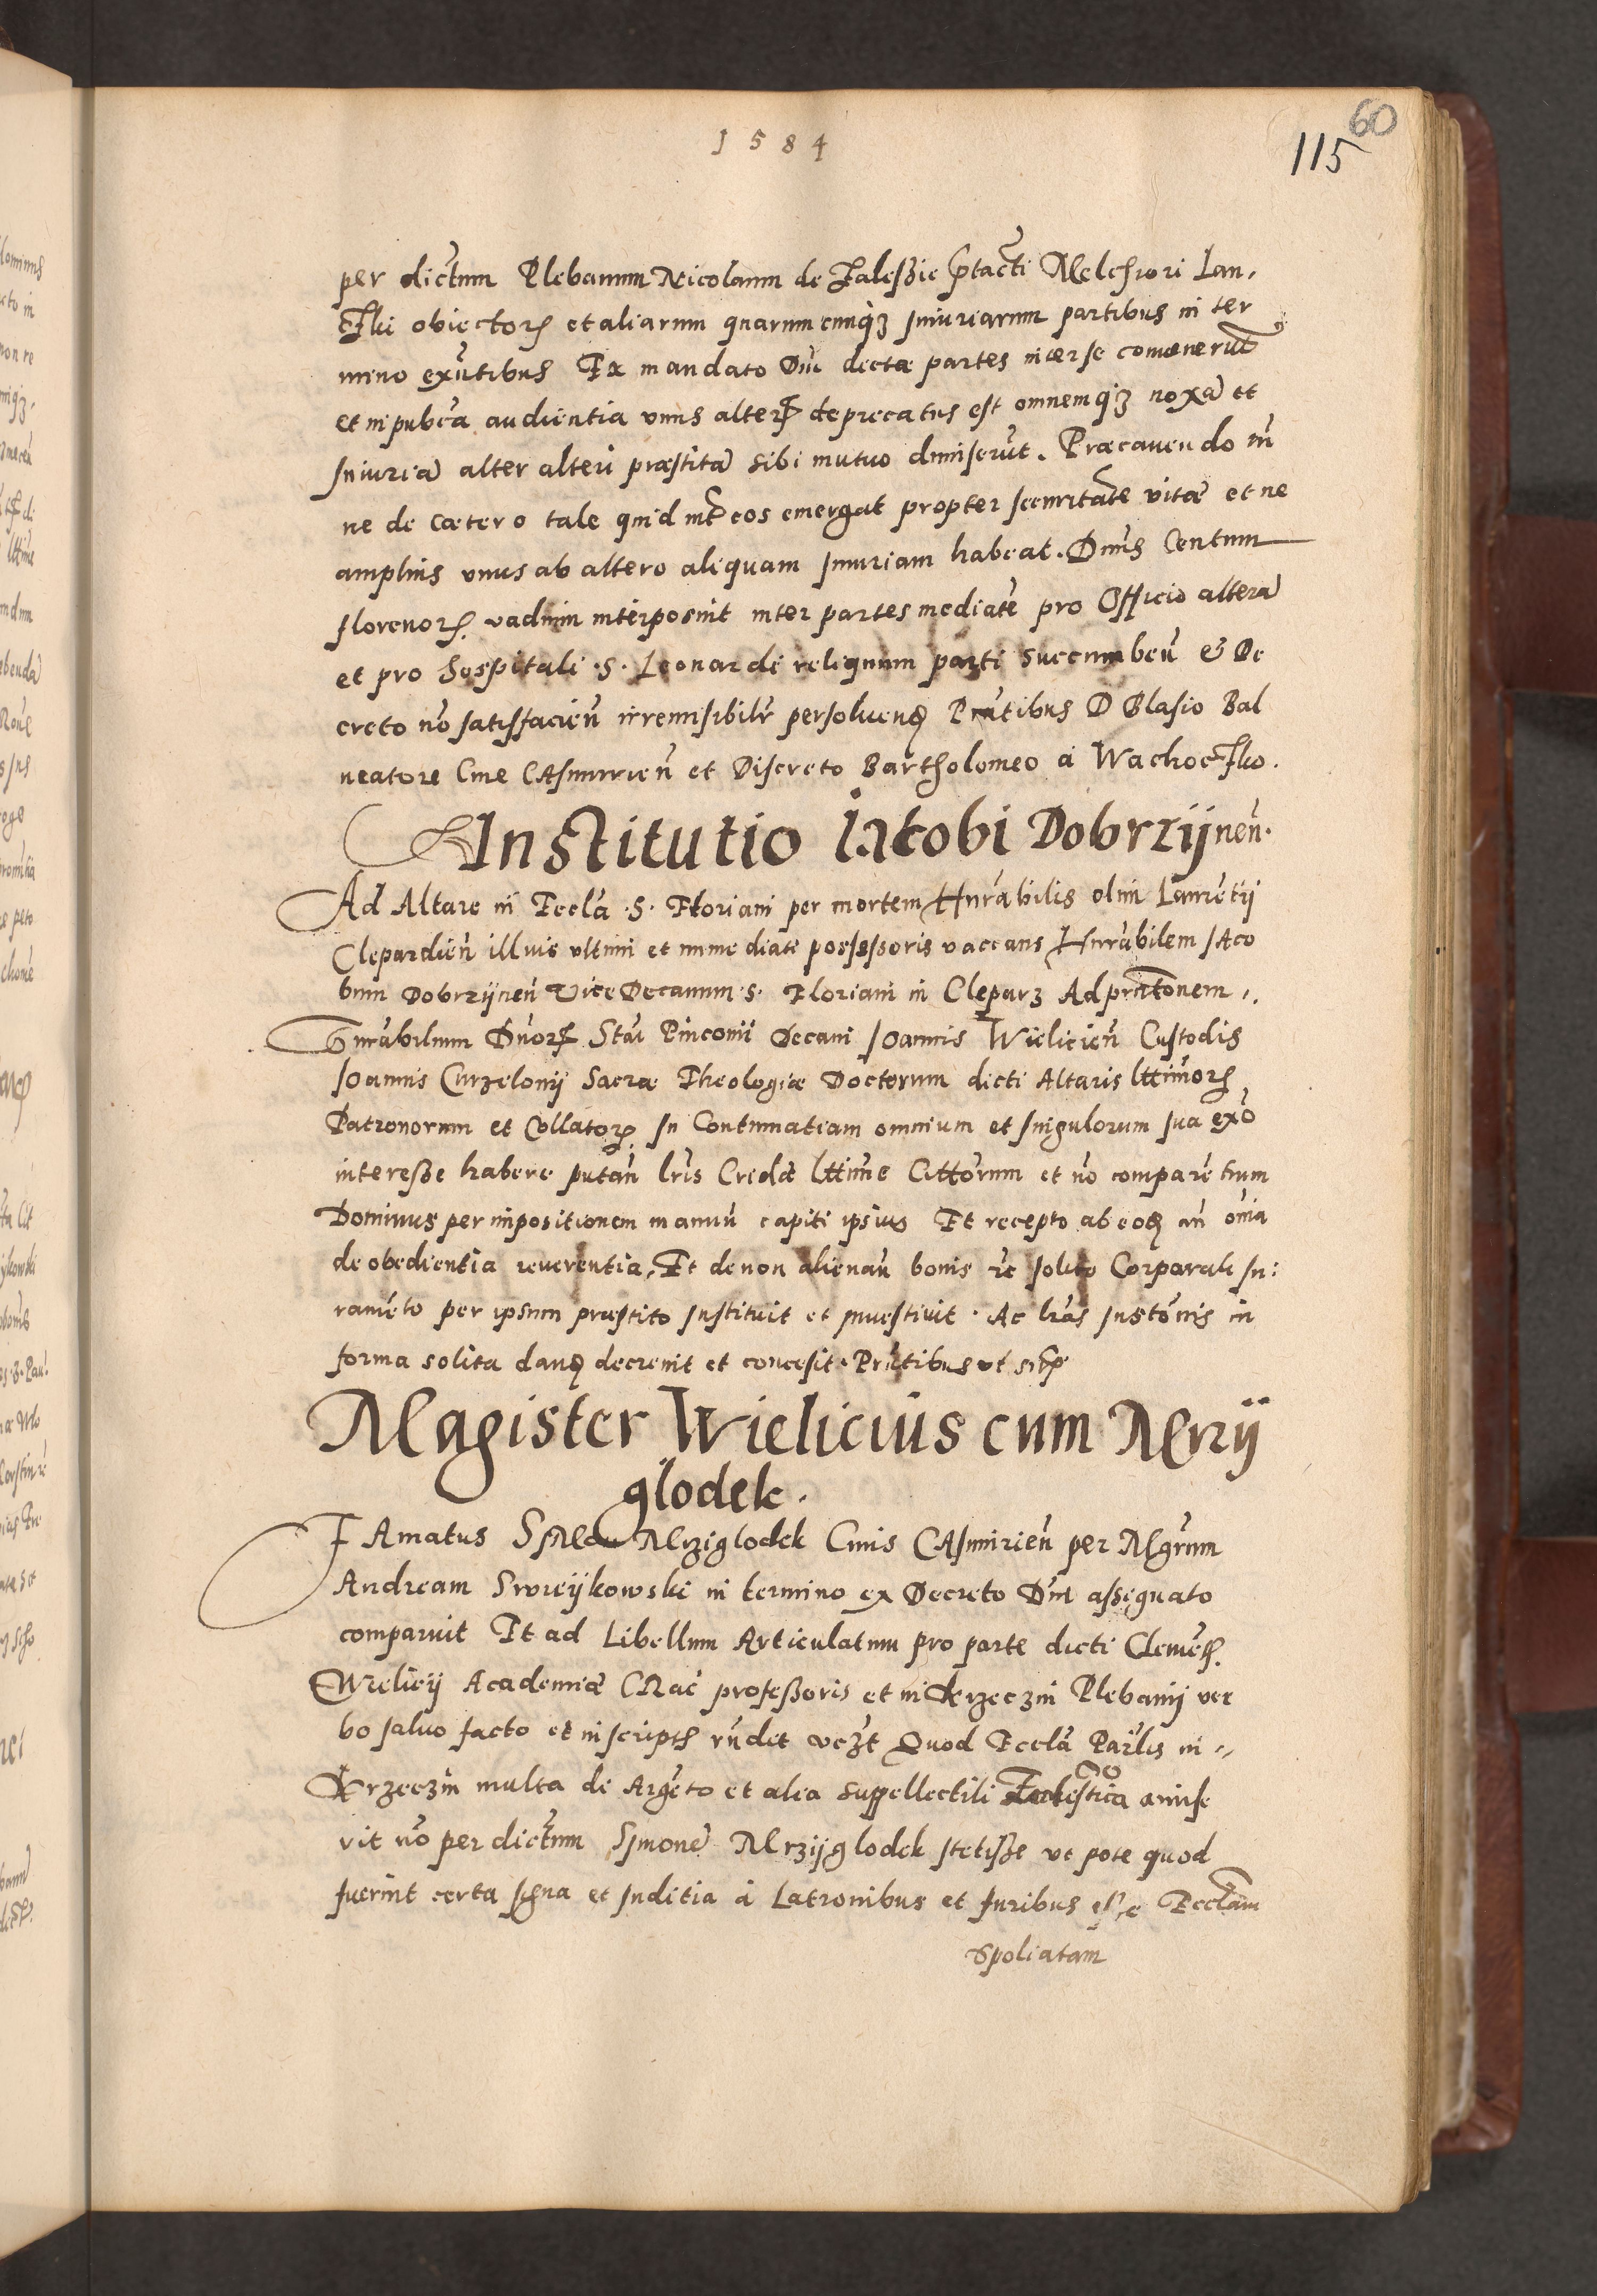 1584
60
115
per dictum Plebanum Nicolaum de Zalessie ptacti Melchiori Lan,
cski obiectorum et aliarum quarumcumqz iniuriarum partibus in ter
mino exñtibus Ex mandato Dni dictæ partes inter se convenerut
et in pubca audientia unus alter deprecatus est omnemqz noxã et
Iniuriã alter alteri præstitã sibi mutuo dimiserũt. Præcavendo tñ
ne de cætero tale quid int eos emergat propter securitatẽ vitæ et ne
amplius unus ab altero aliquam Iniuriam habeat. Dnus Centum
florenor. vadium interposuit inter partes mediate pro Officio alterã
et pro Hospitali .S. Leonardi reliquum parti succumbeñ & De
creto nõ satisfacieñ irremisibilr persoluend Pñtibus D Blasio Bal
neatore Cive CAsimirieñ et Discreto Bartholomeo á Wachocsko.
Institutio Iacobi Dobrzijneñ.
Ad Altare in Eccla .S. Floriani per mortem Hnrabilis olim Laurẽtij
Clepardieñ illius ultimi et immediati possessoris vaccans Hnrabilem IAco
bum Dobrzijneñ Vice Decanum .S. Floriani in Cleparz Ad pñtationem ,.
Hnrabilium Dñor Stai Pinconii Decani IOannis Wielicieñ Custodis
IOannis Curzelonij Sacræ Theologiæ Doctorum dicti Altaris lttimor
Patronorum et Collator In Contumatiam omnium et singulorum sua exõ
interesse habere putañ lris Cridæ lttime Cittorum et nõ comparẽtium
Dominus per impositionem manuũ capiti ipsius Et recepto ab eod añ oĩa
de obedientia reverentia, Et de non alienañ bonis re solito Corporali Iu:
ramẽto per ipsum præstito Instituit et Investivit . Ac lras Instõnis in
forma solita dand decrevit et concesit . Pñtibus ut sup
Magister Wielicius cum Mrzij
głodek.
FAmatus SiMon Mrziglodek Civis CAsimirieñ per Mgrum
Andream Sworzijkowski in termino ex Decreto Dni assignato
comparuit Et ad Libellum Articulatum pro parte dicti Clemẽs.
Wielicij Academiæ CRac professoris et in Krzeczin Plebanij ver
bo salvo facto et in scriptis rñdet vczt Quod Eccla Parlis in
Krzeczin multa de Argẽto et alia suppellectili Ecclestica amise
rit nõ per dictum Simonẽ Mrzijglodek stetisse ut pote quod
fuerint certa signa et Inditia á Latronibus et furibus esse Ecclam
spoliatam